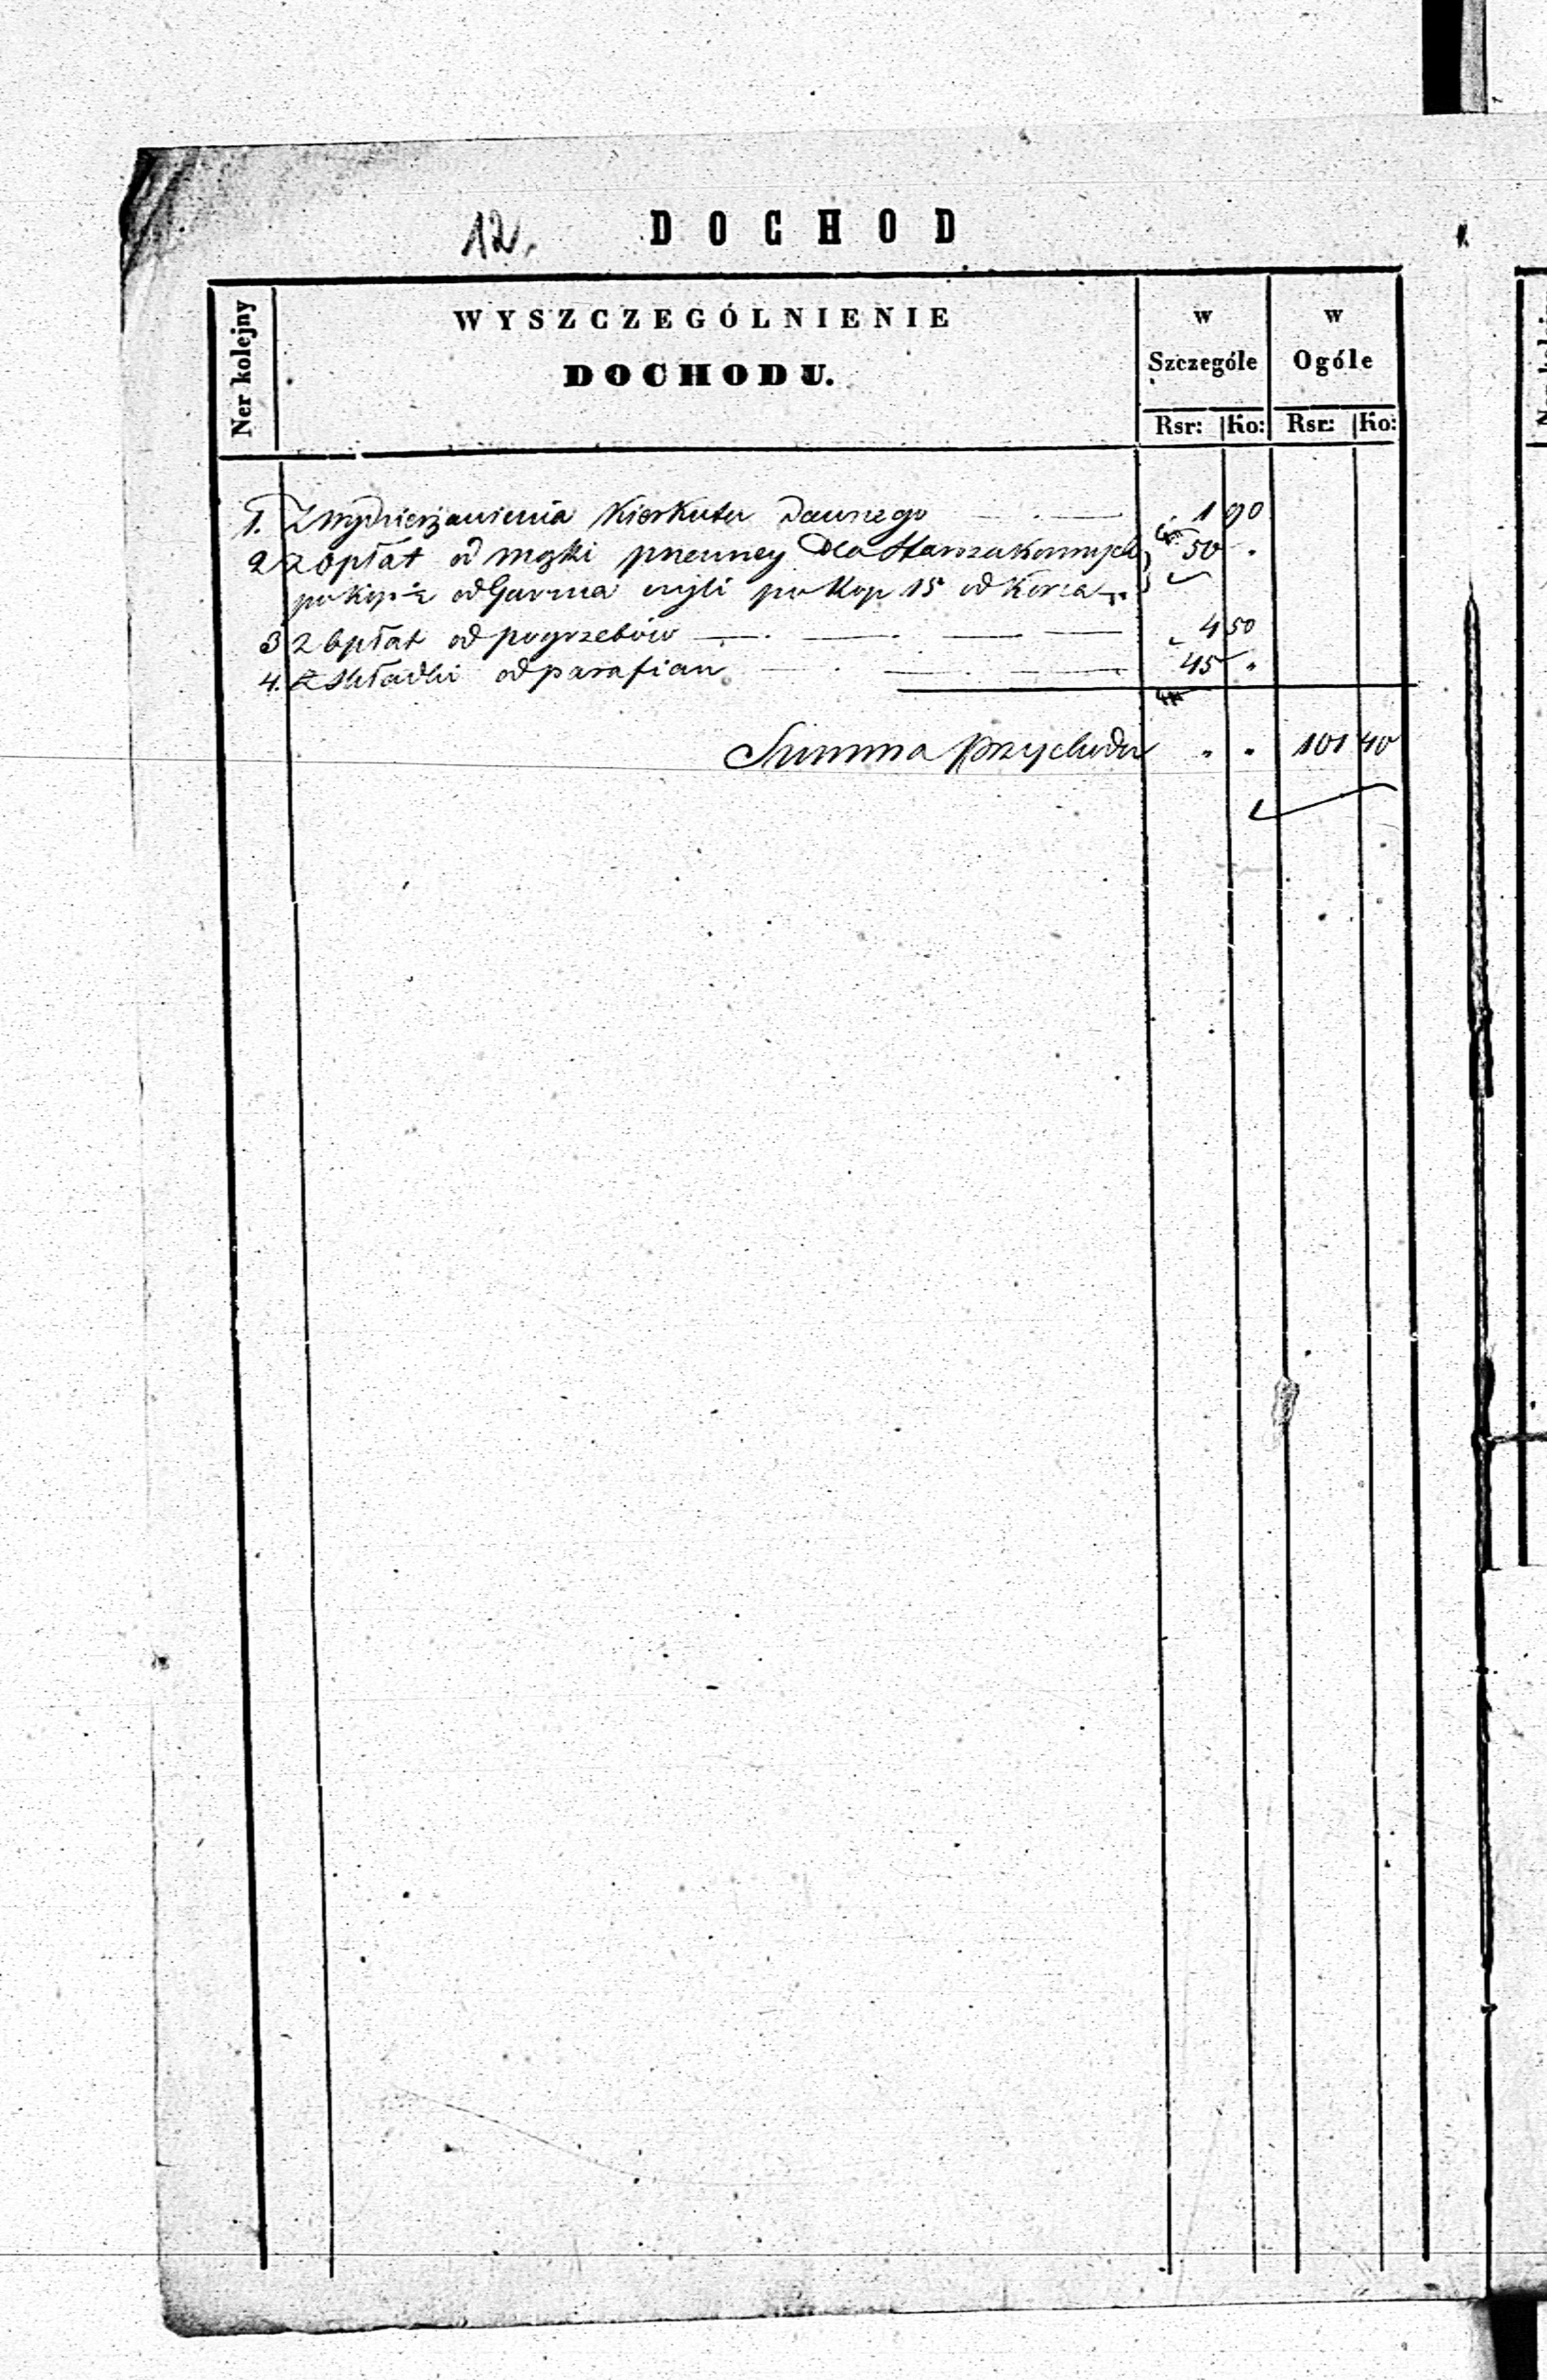 12.
DOCHOD
Ner kolejny
WYSZCZEGÓLNIENIE
DOCHODU.
w
Szczególe
w
Ogóle
Rsr: Ko: Rsr: Ko:
1. Z wydzierżawienia Kierkutu dawnego 1 90
2 z opłat od mąki pszenney dla Starozakonnych 50 "
po kop ½ od Garnca czyli po kop 15 od Korca
3 z opłat od pogrzebów 4 50
4. z składki od parafian 45 "
Summa przychodu " " 101 40